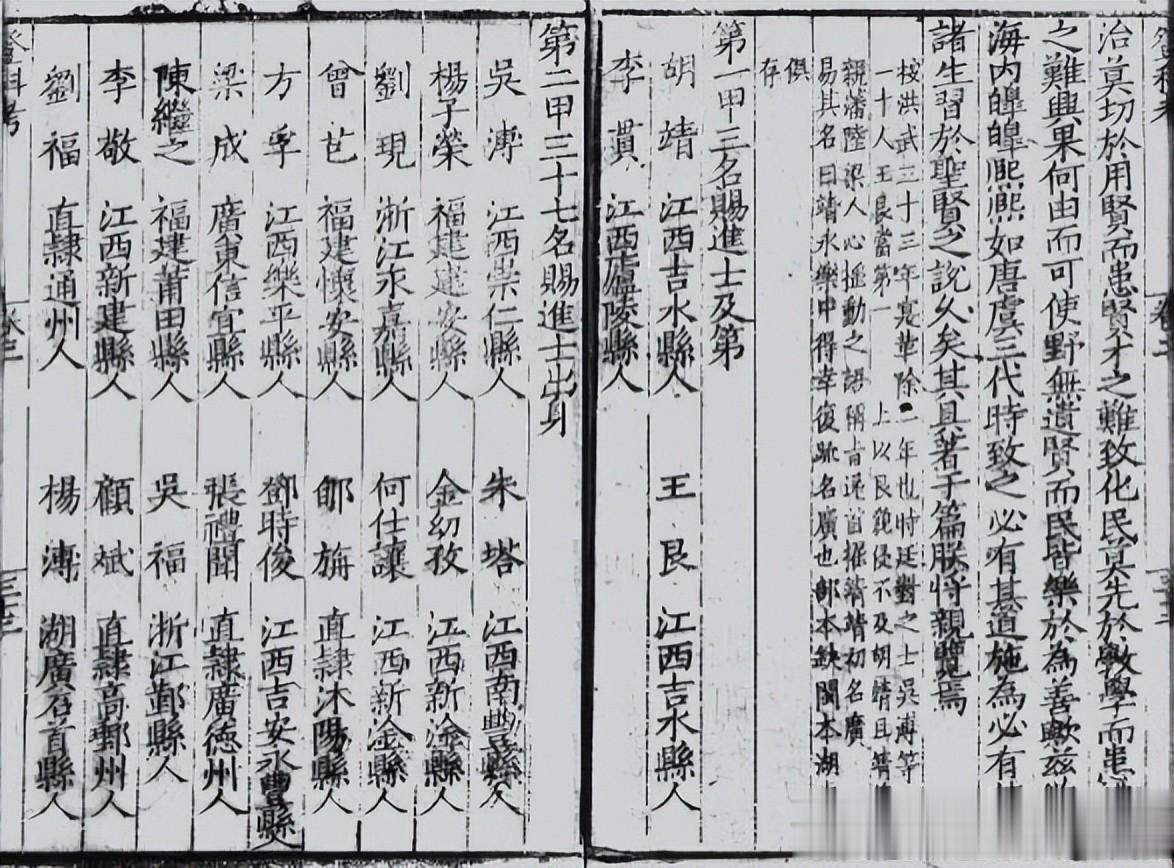 治莫切於用賢而患賢才之難致化民莫先於敎學而患
之難興果何由而可使野無遺賢而民皆樂於為善歟茲
海內皥皥熙熙如唐虞三代時致之必有其道施為必有
諸生習於聖賢之說久矣其具著于篇朕將親覽焉
按洪武三十三年寔革除二年也時廷對之士吳溥等
一十人王艮當第一上以艮貌侵不及胡靖且靖
親藩陸梁人心搖動之語稱旨遂首擢靖靖初名廣
易其名曰靖永樂中得幸復名廣也鄣本缺閩本湖
俱
存
第一甲三名賜進士及第
胡靖 江西吉水縣人 王艮 江西吉水縣人
李貫 江西廬陵縣人
第二甲三十七名賜進士出身
吳溥 江西崇仁縣人 朱塔 江西南豐縣人
楊子榮 福建建安縣人 金幼孜 江西新淦縣人
劉現 浙江永嘉縣人 何仕讓 江西新淦縣人
曾芑 福建懷安縣人 鄭旃 直隷沐陽縣人
方孚 江西樂平縣人 鄧時俊 江西吉安永豐縣人
梁成 廣東信宜縣人 張禮聞 直隷廣德州人
陳繼之 福建莆田縣人 吳福 浙江鄞縣人
李敬 江西新建縣人 顧斌 直隷高郵州人
劉福 直隷通州人 楊溥 湖廣石首縣人
登科考